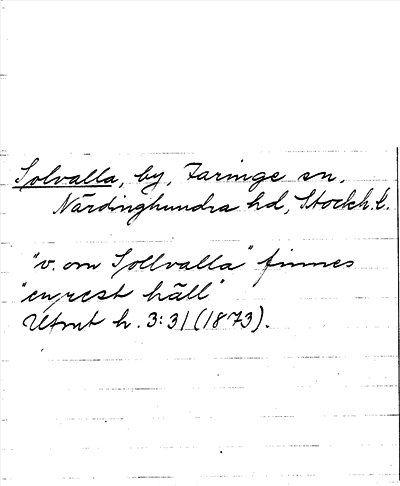 Solvalla, by, Faringe sn,
Närdinghundra hd, Stockh. l.
"v. om Sollvalla" finnes
"en rest häll"
Utmt h. 3:31 (1873).